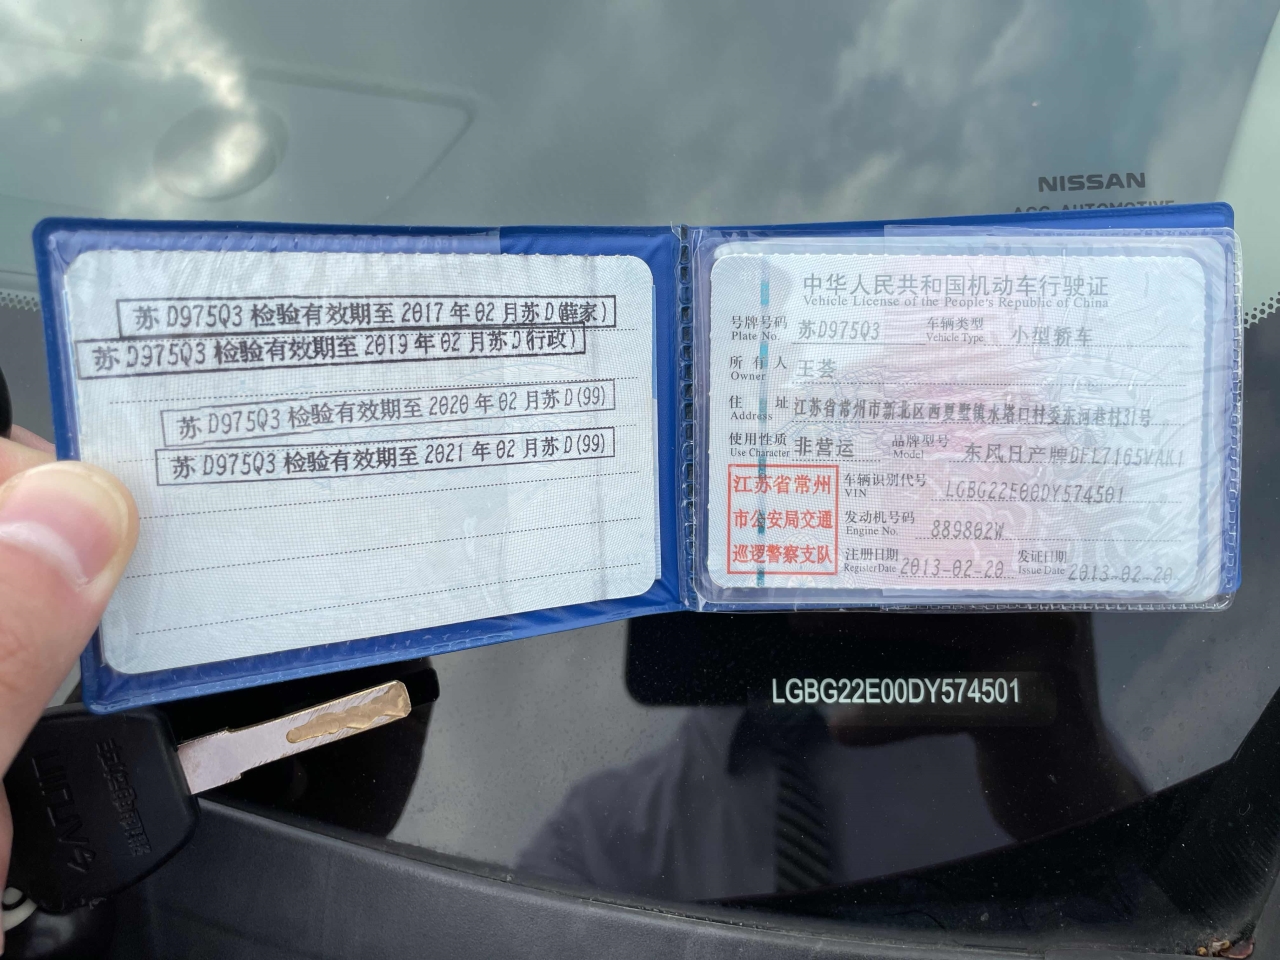 NISSAN
苏D975Q3 检验有效期至 2017 年 02 月苏D(薛家)
苏D975Q3 检验有效期至 2019 年 02 月苏D(行政)
苏D975Q3 检验有效期至 2020 年 02 月苏D(99)
苏D975Q3 检验有效期至 2021 年 02 月苏D(99)
中华人民共和国机动车行驶证
Vehicle License of the People's Republic of China
号牌号码 苏D975Q3 车辆类型 小型轿车
Plate No. Vehicle Type
所有人 王荟
Owner
住址 江苏省常州市新北区西夏墅镇水塔口村委东河巷村31号
Address
使用性质 非营运 品牌型号 东风日产牌DFL7165VAK1
Use Character Model
江苏省常州
市公安局交通
巡逻警察支队
车辆识别代号 LGBG22E00DY574501
VIN
发动机号码 889802W
Engine No.
注册日期 2013-02-20 发证日期 2013-02-20
Register Date Issue Date
LGBG22E00DY574501